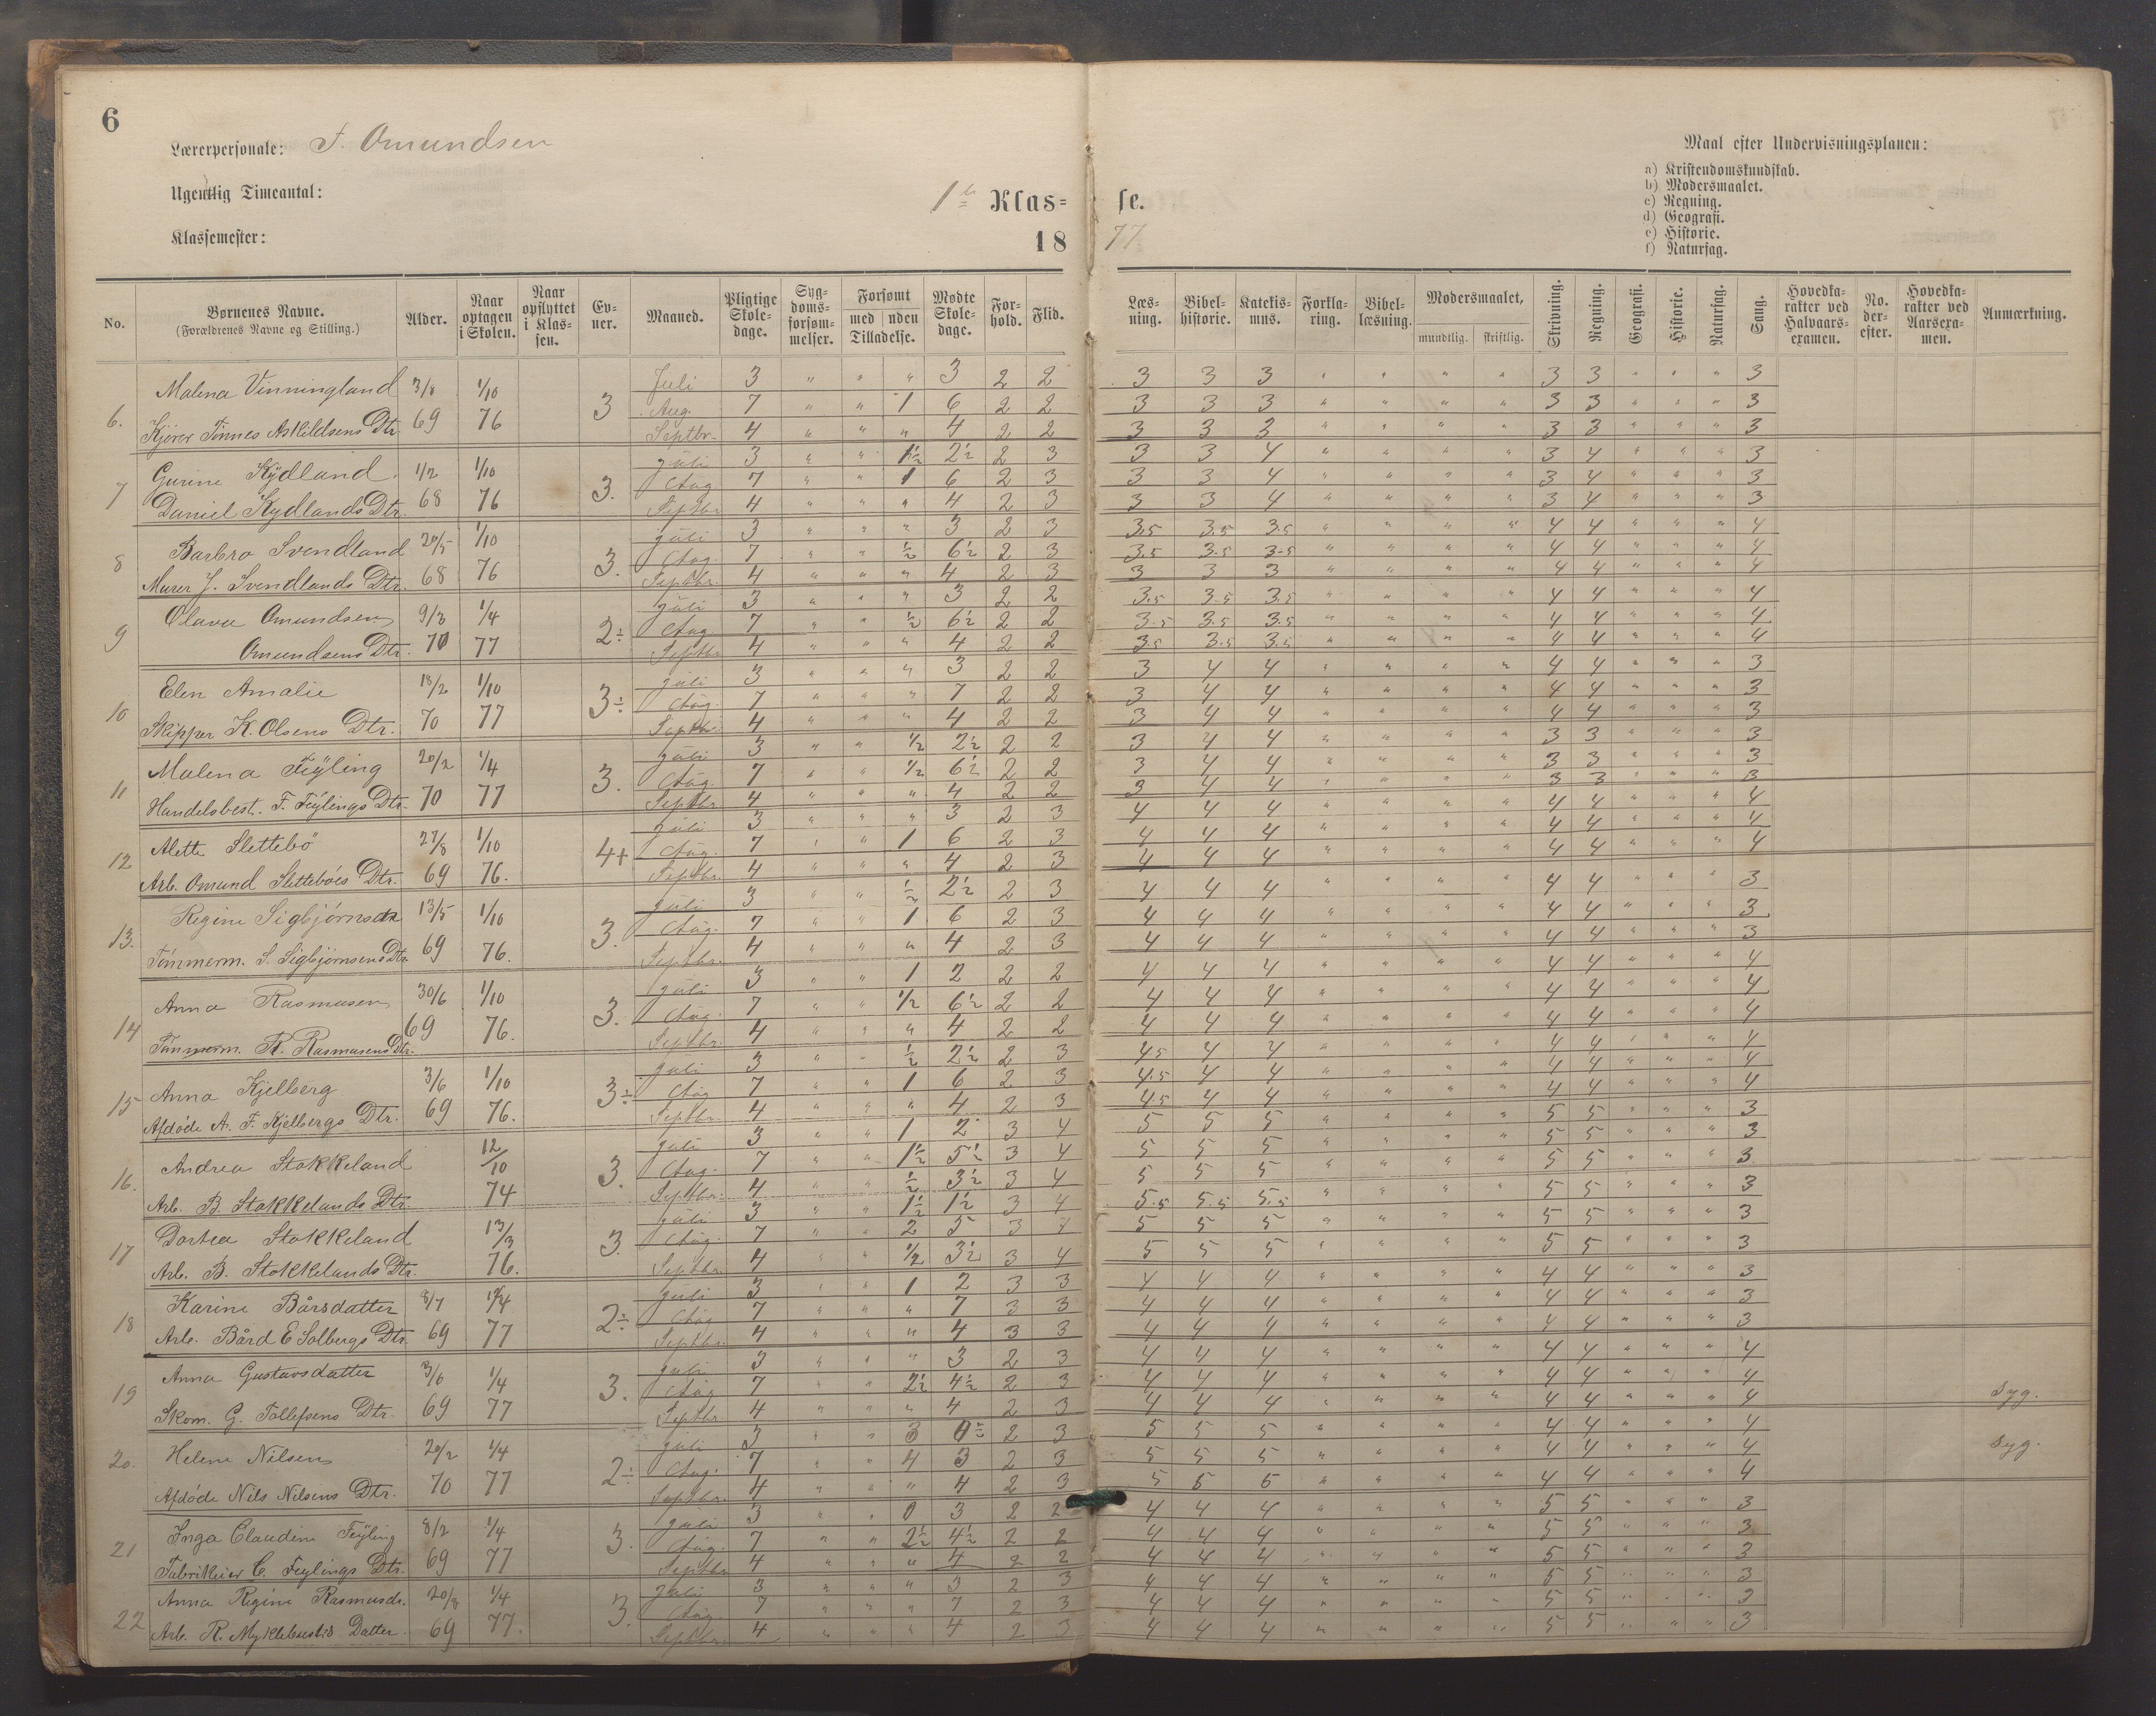 6
Lærerpersonale: F. Omundsen
Ugentlig Timeantal:
Klassemester:
1ste Klas= se.
18 77
Maal efter Undervisningsplanen:
a) Kristendomskundskab.
b) Modersmaalet.
c) Regning.
d) Geografi.
e) Historie.
f) Naturfag.
No. Børnenes Navne. (Forældrenes Navne og Stilling.) Alder. Naar optagen i Skolen. Naar opflyttet i Klassen. Evner. Maaned. Pligtige Skoledage. Sygdomsforsømmelser. Forsømt med uden Tilladelse. Mødte Skoledage. Forhold. Flid. Læsning. Bibelhistorie. Katekismus. Forklaring. Bibellæsning. Modersmaalet, mundtlig. skriftlig. Skrivning. Regning. Geografi. Historie. Naturfag. Sang. Hovedkarakter ved Halvaarsexamen. No. derefter. Hovedkarakter ved Aarsexamen. Anmærkning.
Malena Vinningland 3/8 1/10 Juli 3 " " " 3 2 2 3 3 3 " " " " 3 3 " " " 3
6. 69 76 3 Aug. 7 " " 1 6 2 2 3 3 3 " " " " 3 3 " " " 3
Kjører Tønnes Askildsens Dtr. Septbr. 4 " " " 4 2 2 3 3 3 " " " " 3 3 " " " 3
Gurine Kydland. 1/2 1/10 Juli 3 " " 1/2 2 1/2 2 3 3 3 4 " " " " 3 4 " " " 3
7 3. Aug 7 " " 1 6 2 3 3 3 4 " " " " 3 4 " " " 3
Daniel Kydlands Dtr. 68 76 Septbr 4 " " " 4 2 3 3 3 4 " " " " 3 4 " " " 3
Barbra Svendland 20/5 1/10 Juli 3 " " " 3 2 3 3.5 3.5 3.5 " " " " 4 4 " " " 4
8 3. Aug. 7 " " 1/2 6 1/2 2 3 3.5 3.5 3.5 " " " " 4 4 " " " 4
Murer J. Svendlands Dtr. 68 76 Septbr. 4 " " " 4 2 3 3 3 3 " " " " 4 4 " " " 4
Olava Omundsen 9/3 1/4 Juli 3 " " " 3 2 2 3.5 3.5 3.5 " " " " 4 4 " " " 4
9 2÷ Aug 7 " " 1/2 6 1/2 2 2 3.5 3.5 3.5 " " " " 4 4 " " " 4
Omundsens Dtr. 70 77 Septbr 4 " " " 4 2 2 3.5 3.5 3.5 " " " " 4 4 " " " 4
Elen Amalie 18/2 1/10 Juli 3 " " " 3 2 2 3 4 4 " " " " 4 4 " " " 3
10 3÷ Aug. 7 " " " 7 2 2 3 4 4 " " " " 4 4 " " " 3
Skipper K. Olsens Dtr. 70 77 Septbr. 4 " " " 4 2 2 3 4 4 " " " " 4 4 " " " 3
Malena Feÿling 20/2 1/4 Juli 3 " " 1/2 2 1/2 2 2 3 4 4 " " " " 3 3 " " " 3
11 3. Aug. 7 " " 1/2 6 1/2 2 2 3 4 4 " " " " 3 3 " " " 3
Handelsbest. F. Feÿlings Dtr. 70 77 Septbr 4 " " " 4 2 2 3 4 4 " " " " 3 3 " " " 3
Alette Slettebö 27/8 1/10 Juli 3 " " " 3 2 3 4 4 4 " " " " 4 4 " " " 4
12 4+ Aug. 7 " " 1 6 2 3 4 4 4 " " " " 4 4 " " " 4
Arb. Omund Slettebóes Dtr. 69 76. Septbr. 4 " " " 4 2 3 4 4 4 " " " " 4 4 " " " 4
Regine Sigbjörnsdtr 13/5 1/10 Juli 3 " " 1/2 2 1/2 2 3 4 4 4 " " " " 4 4 " " " 3
13. 3. Aug. 7 " " 1 6 2 3 4 4 4 " " " " 4 4 " " " 3
Tömmerm. S. Sigbjørnsens Dtr 69 76. Septbr. 4 " " " 4 2 3 4 4 4 " " " " 4 4 " " " 3
Anna Rasmusen 30/6 1/10 Juli 3 " " 1 2 2 2 4 4 4 " " " " 4 4 " " " 4
14 3. Aug. 7 " " 1/2 6 1/2 2 2 4 4 4 " " " " 4 4 " " " 4
Tömmerm. R. Rasmusens Dtr. 69 76. Septbr. 4 " " " 4 2 2 4 4 4 " " " " 4 4 " " " 4
Anna Kjelberg 3/6 1/10 Juli 3 " " 1/2 2 1/2 2 3 4.5 4 4 " " " " 4 4 " " " 4
15 3÷ Aug 7 " " 1 6 2 3 4.5 4 4 " " " " 4 4 " " " 4
Afdóde A. F. Kjelbergs Dtr. 69 76. Septbr. 4 " " " 4 2 3 4.5 4 4 " " " " 4 4 " " " 4
Andrea Stokkeland 12/10 Juli 3 " " 1 2 3 4 5 5 5 " " " " 5 5 " " " 3
16. 3. Aug. 7 " " 1 1/2 5 1/2 3 4 5 5 5 " " " " 5 5 " " " 3
Arb. B. Stokkelands Dtr. 74 Septbr. 4 " " 1/2 3 1/2 3 4 5 5 5 " " " " 5 5 " " " 3
Dortea Stokkeland 13/3 Juli 3 " " 1 1/2 1 1/2 3 4 5.5 5.5 5.5 " " " " 5 5 " " " 3
17 3. Aug. 7 " " 2 5 3 4 5 5 5 " " " " 5 5 " " " 3
Arb. B. Stokkelands Dtr. 76. Septbr. 4 " " 1/2 3 1/2 3 4 5 5 5 " " " " 5 5 " " " 3
Karine Bårsdatter 8/7 1/4 Juli 3 " " 1 2 3 3 4 4 4 " " " " 4 4 " " " 3
18 2÷ Aug 7 " " " 7 3 3 4 4 4 " " " " 4 4 " " " 3
Arb. Bård E Solbergs Dtr. 69 77 Septbr. 4 " " " 4 3 3 4 4 4 " " " " 4 4 " " " 3
Anna Gustavsdatter 3/6 1/4 Juli 3 " " " 3 2 3 4 4 4 " " " " 4 4 " " " 4
19 3. Aug 7 " " 2 1/2 4 1/2 2 3 4 4 4 " " " " 4 4 " " " 4 Syg.
Skom. G. Tollefsens Dtr. 69 77 Septbr 4 " " " 4 2 3 4 4 4 " " " " 4 4 " " " 4
Helene Nilsen 20/2 1/4 Juli 3 " " 3 0 2 3 5 5 5 " " " " 4 4 " " " 4
20. 2÷ Aug. 7 " " 4 3 2 3 5 5 5 " " " " 4 4 " " " 4 Syg.
Afdóde Nils Nilsens Dtr. 70 77 Septbr. 4 " " " 4 2 3 5 5 5 " " " " 4 4 " " " 4
Inga Claudine Feÿling 8/2 1/4 Juli 3 0 3 2 2 4 4 4 " " " " 5 5 " " " 3
21 3. Aug. 7 " " 2 1/2 4 1/2 2 2 4 4 4 " " " " 5 5 " " " 3
Fabrikeier C. Feylings Dtr. 69 77 Septbr 4 " " " 4 2 2 4 4 4 " " " " 5 5 " " " 3
Anna Regine Rasmusdr. 20/8 1/4 Juli 3 " " " 3 2 3 4 4 4 " " " " 5 5 " " " 3
22 3. Aug. 7 " " " 7 2 3 4 4 4 " " " " 5 5 " " " 3
Arb. R. Myklebusts Datter. 69 77. Septbr. 4 " " " 4 2 3 4 4 4 " " " " 5 5 " " " 3